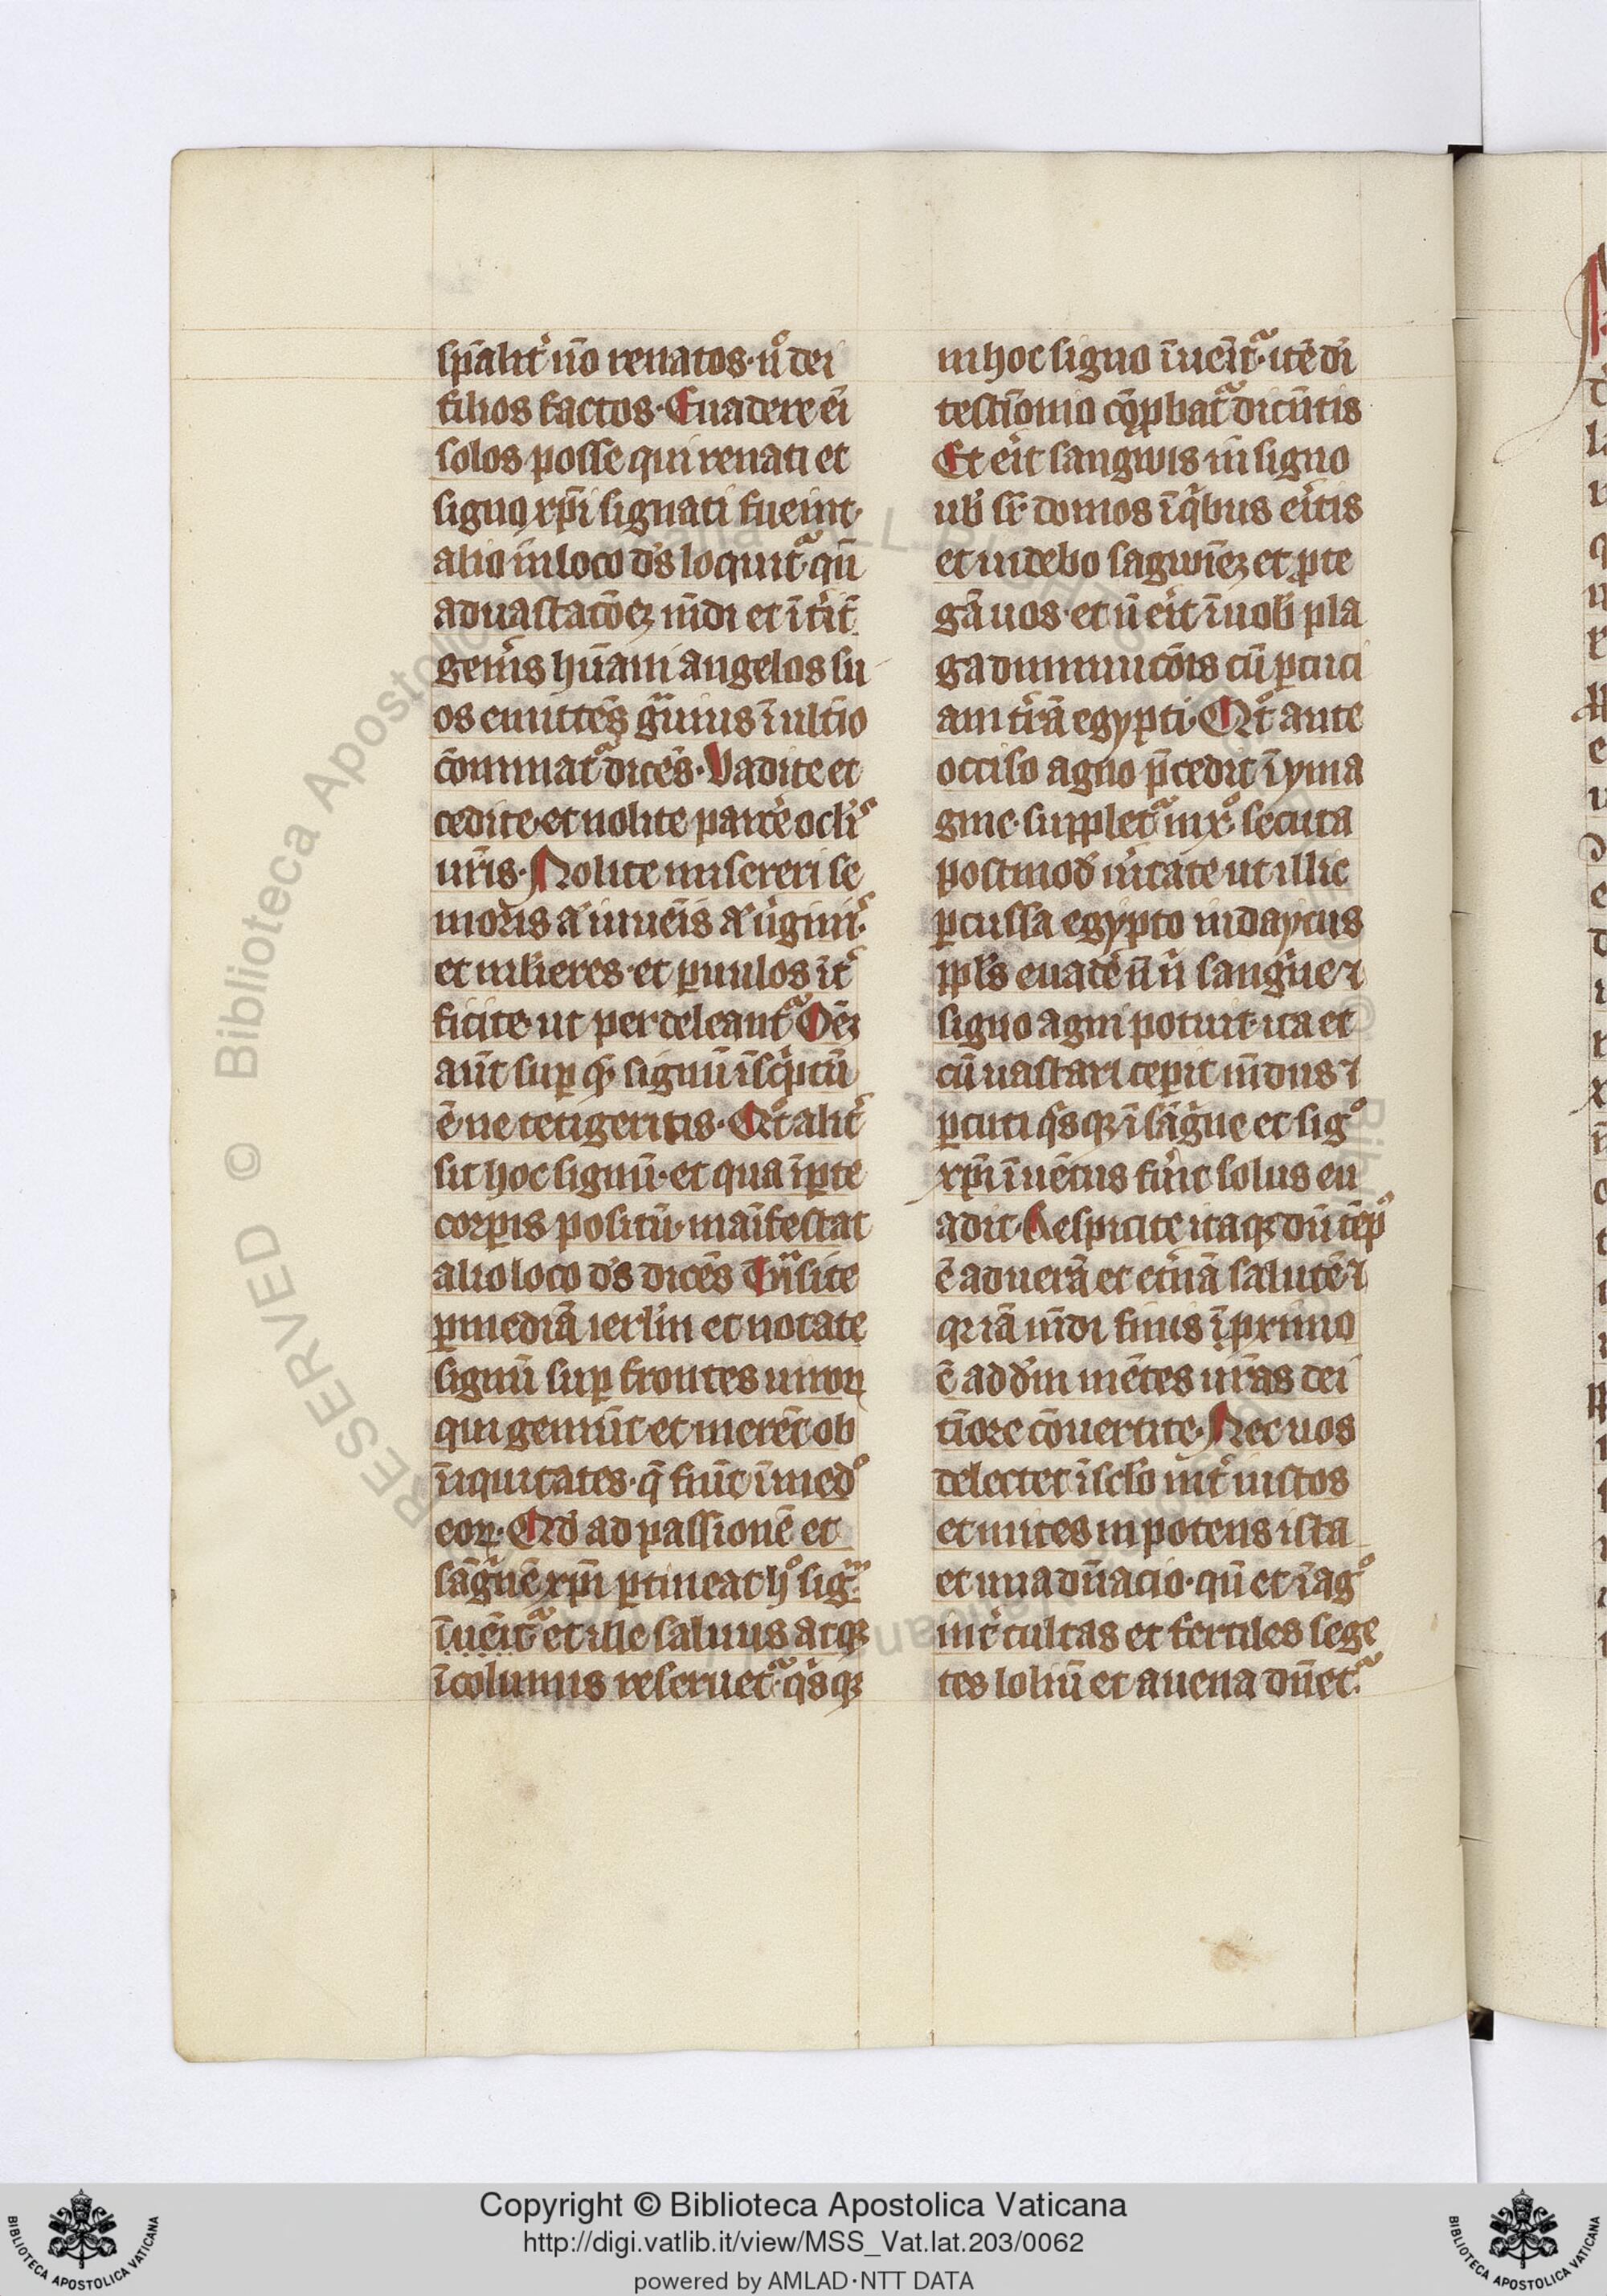 sp̄alit̉ ūo renatos· ūo dei
filios factos· Euadere ēi
solos posse qui renati et
signo xp̄i signati fueint·
alio in loco d̄s loquit̉ qn̄
ad uastacōeꝫ mdi et ītīt
gen̄is hūani angelos su
os emittēs g̃uius ī ultīo
cōminat̉ dicēs· Vadite et
cedite· et nolite parcē oclī
ur̄is· Nolite misereri se
mor̄is
et mlieres· et ꝑuulos īt̉
ficite· ut per deleant̉ Oēꝫ
aūt suꝑ signū īscptū
ē ne tetigeritis· Qd̉ alit̉
sit hoc signū· et qua ī ꝑte
corꝑis positū· maīfestat
alio loco d̄s dicēs Tn̄site
ꝑ mediā ierl̄m et notate
signū suꝑ frontes uiroꝝ
qui gemūt et merēt ob
īiquitates· q̄ fiūt ī med°
eoꝝ· Qd̉ ad passionē et
sāg̉uē xp̄i ꝑtineat h° sigᷓ
īueīt̉ et ille saluus atqꝫ
īcolumis reseruet̉ qˢqꝫ
in hoc signo īueīt̉· itē dī
testīonio cōpbat̉ dicētis
Et eīt sangwis in signo
ub̄ sr̄ domos īq̉bus eītis
et uidebo sagwīeꝫ et ꝓte
gā uos· et n̄ eīt ī uob̄ pla
ga diminucōis cū ꝑcuci
am tr̄ā egypti· Qd̉ ante
occiso agno p̄cedit ī yma
gine· supplet̉ in xº secuta
postmod̄ ūitate ut illic
ꝑcussa egypto iudaycus
ppl̄s euadē n̄ n̄ sang̉ue ⁊
signo agni potuit· ita et
cū uastari ceꝑit mūdus ⁊
ꝑcuti qˢqꝫ ī sāg̉ue et sig°
xp̄i īuētus fūit solus eu
adit· Aspicite itaqꝫ dū tēp°
ē ad uerā et et̉nā salutē ⁊
q̉ iā mdi finis ī primo
ē ad dm̄ mētes ur̄as dei
tīore cōuertite· Nec uos
delectet ī sclo īt̉ iustos
et mites inpotens ista
et una dn̄acio· qn̄ et ī ag°
int̉ cultas et fertiles sege
tes loliū et auena dn̄et̉
Copyright © Biblioteca Apostolica Vaticana
http://digi.vatlib.it/view/MSS_Vat.lat.203/0062
powered by AMLAD·NTT DATA